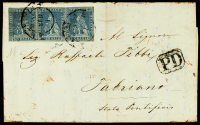 Al Signor
Sig Raffaele Fabbri
PD
Fabriano
Stato Pontificio